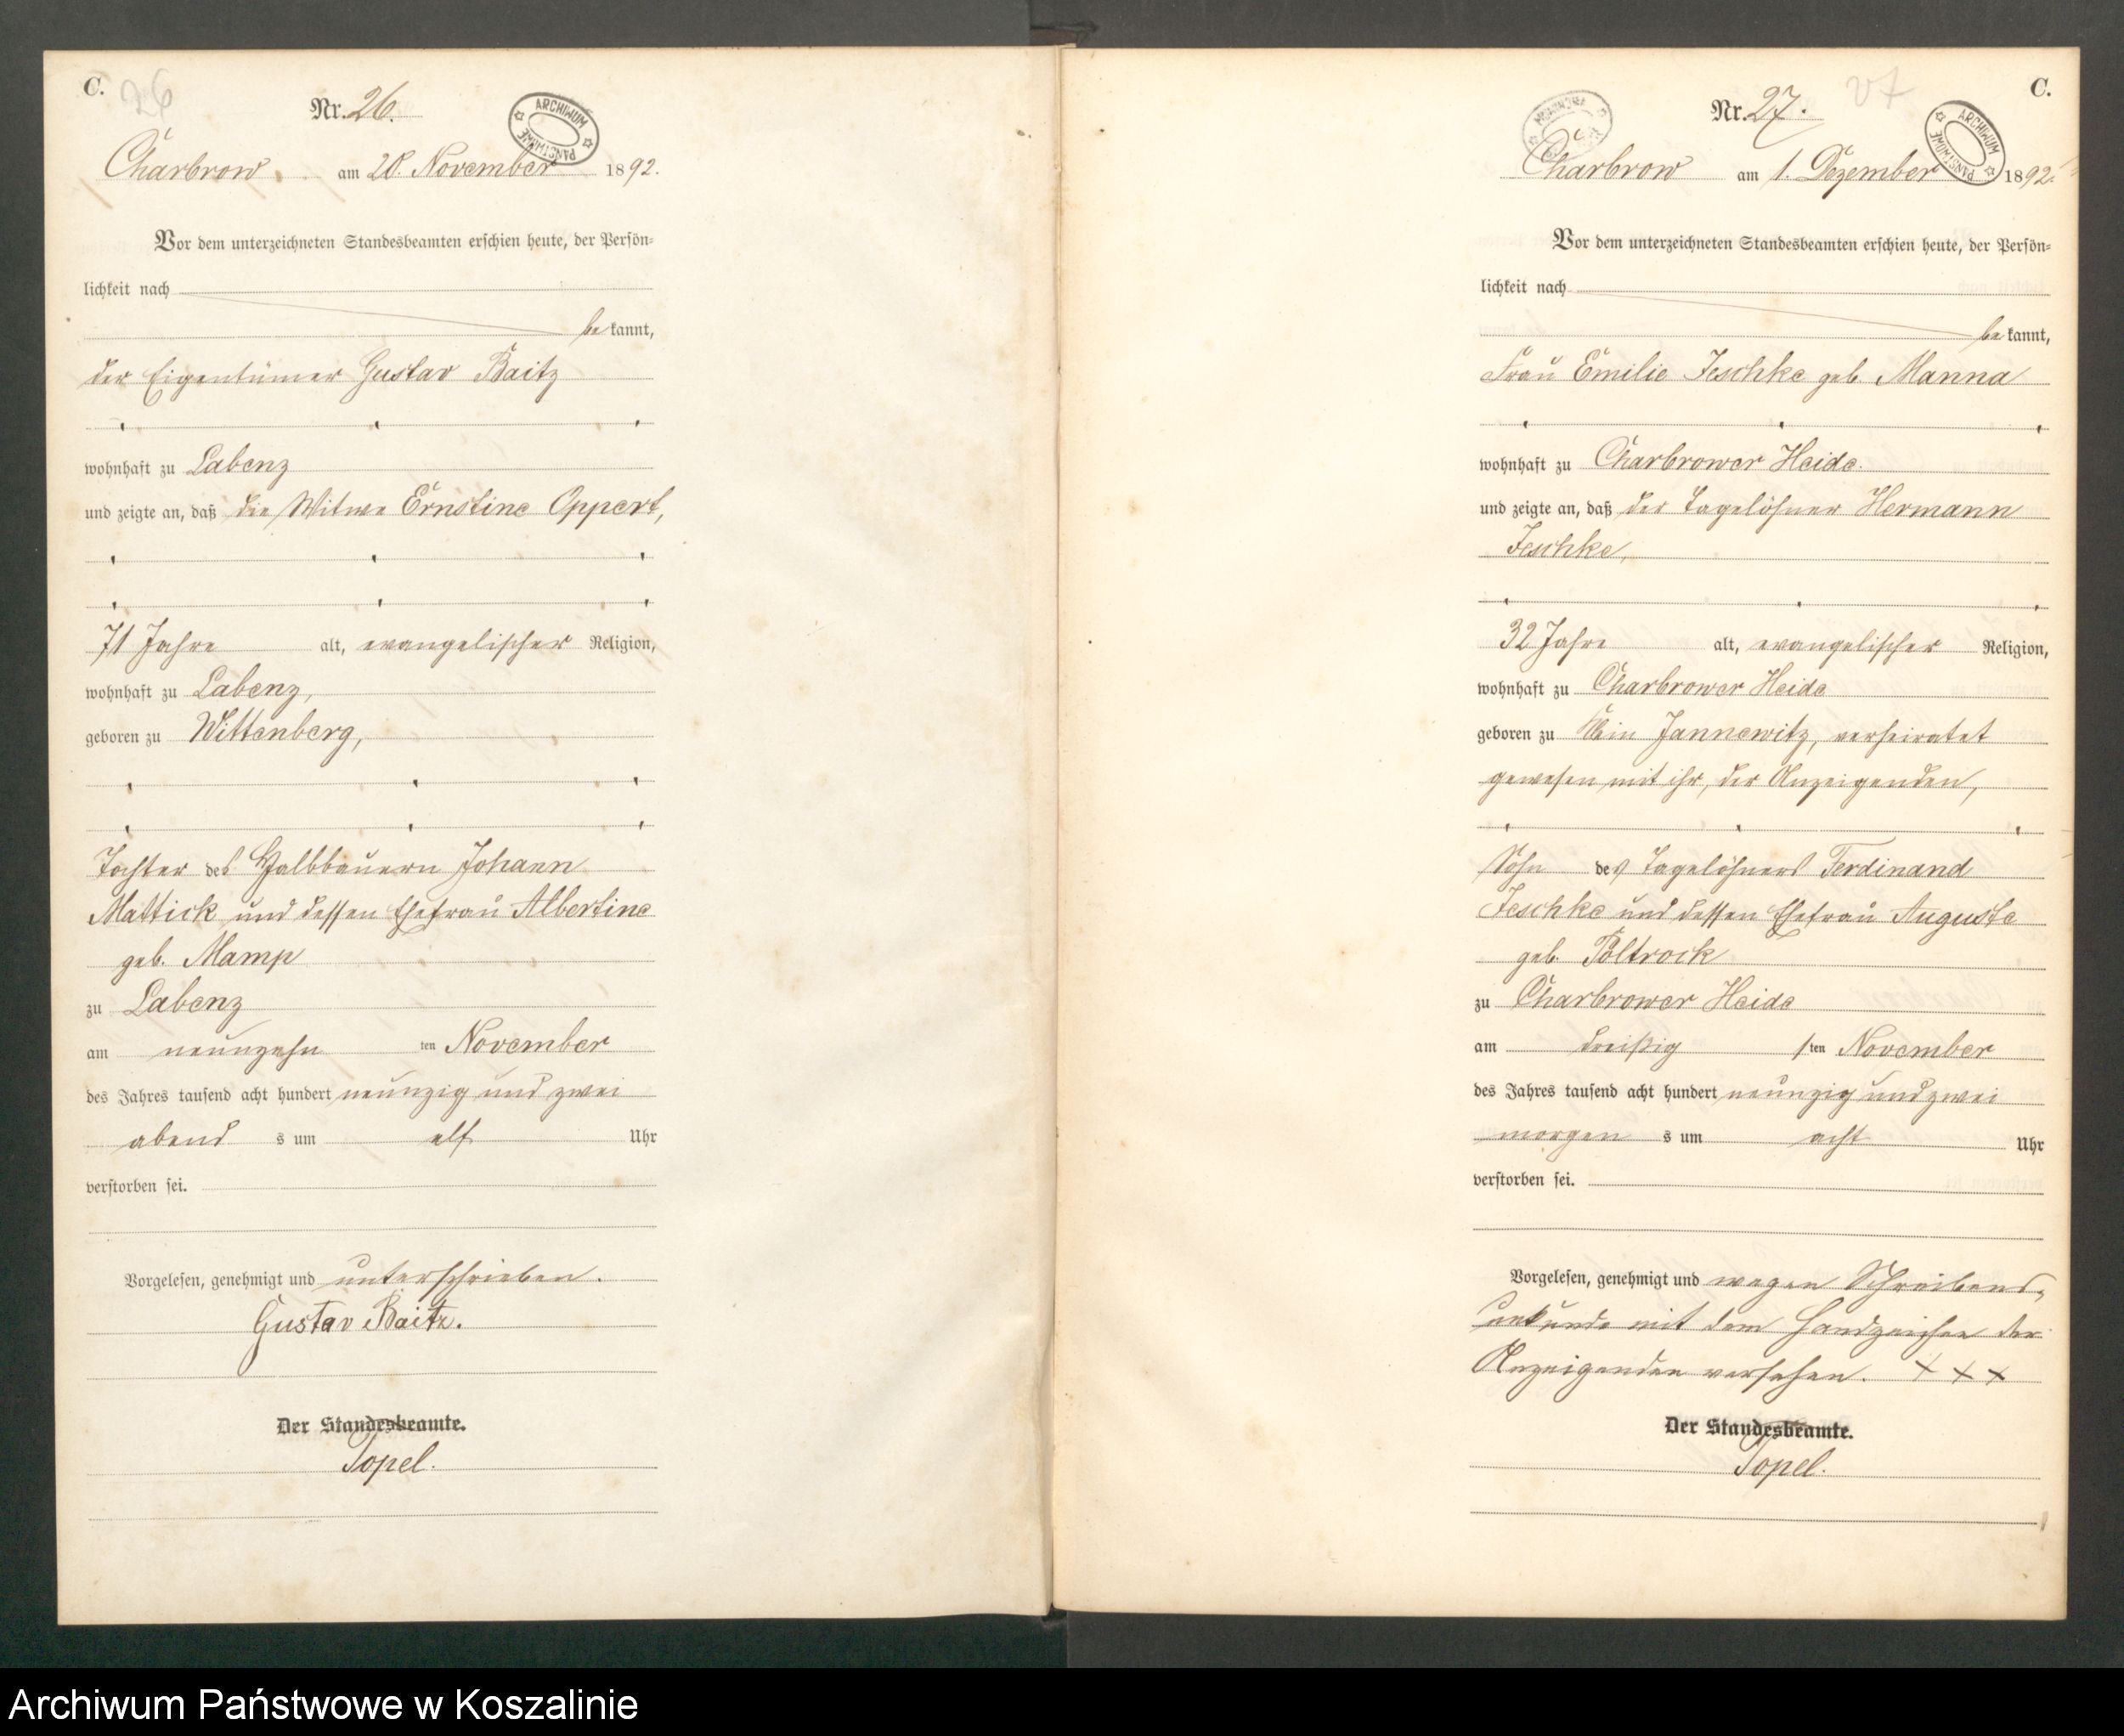 C.
26
Nr. 26.
ARCHIWUM PAŃSTWOWE
Charbrow am 20. November 1892.
Vor dem unterzeichneten Standesbeamten erschien heute, der Persön-
lichkeit nach
be kannt,
der Eigentümer Gustav Baitz
wohnhaft zu Labenz
und zeigte an, daß die Witwe Ernstine Oppert,
71 Jahre alt, evangelischer Religion,
wohnhaft zu Labenz,
geboren zu Wittenberg,
Tochter des Halbbauern Johann
Mattick und dessen Ehefrau Albertine
geb. Mamp
zu Labenz
am neunzehn ten November
des Jahres tausend acht hundert neunzig und zwei
abend s um elf Uhr
verstorben sei.
Vorgelesen, genehmigt und unterschrieben.
Gustav Baitz.
Der Standesbeamte.
Topel.
C.
27
Nr. 27.
ARCHIWUM PAŃSTWOWE
Charbrow am 1. Dezember 1892.
Vor dem unterzeichneten Standesbeamten erschien heute, der Persön-
lichkeit nach
be kannt,
Frau Emilie Jeschke geb. Manna
wohnhaft zu Charbrower Heide.
und zeigte an, daß der Tagelöhner Hermann
Jeschke,
32 Jahre alt, evangelischer Religion,
wohnhaft zu Charbrower Heide
geboren zu Klein Jannewitz, verheiratet
gewesen mit ihr, der Anzeigenden,
Sohn des Tagelöhners Ferdinand
Jeschke und dessen Ehefrau Auguste
geb. Poltrock
zu Charbrower Heide
am dreißig sten November
des Jahres tausend acht hundert neunzig und zwei
morgen s um acht Uhr
verstorben sei.
Vorgelesen, genehmigt und wegen Schreibens-
unkunde mit dem Handzeichen der
Anzeigenden versehen. X X X
Der Standesbeamte.
Topel.
Archiwum Państwowe w Koszalinie